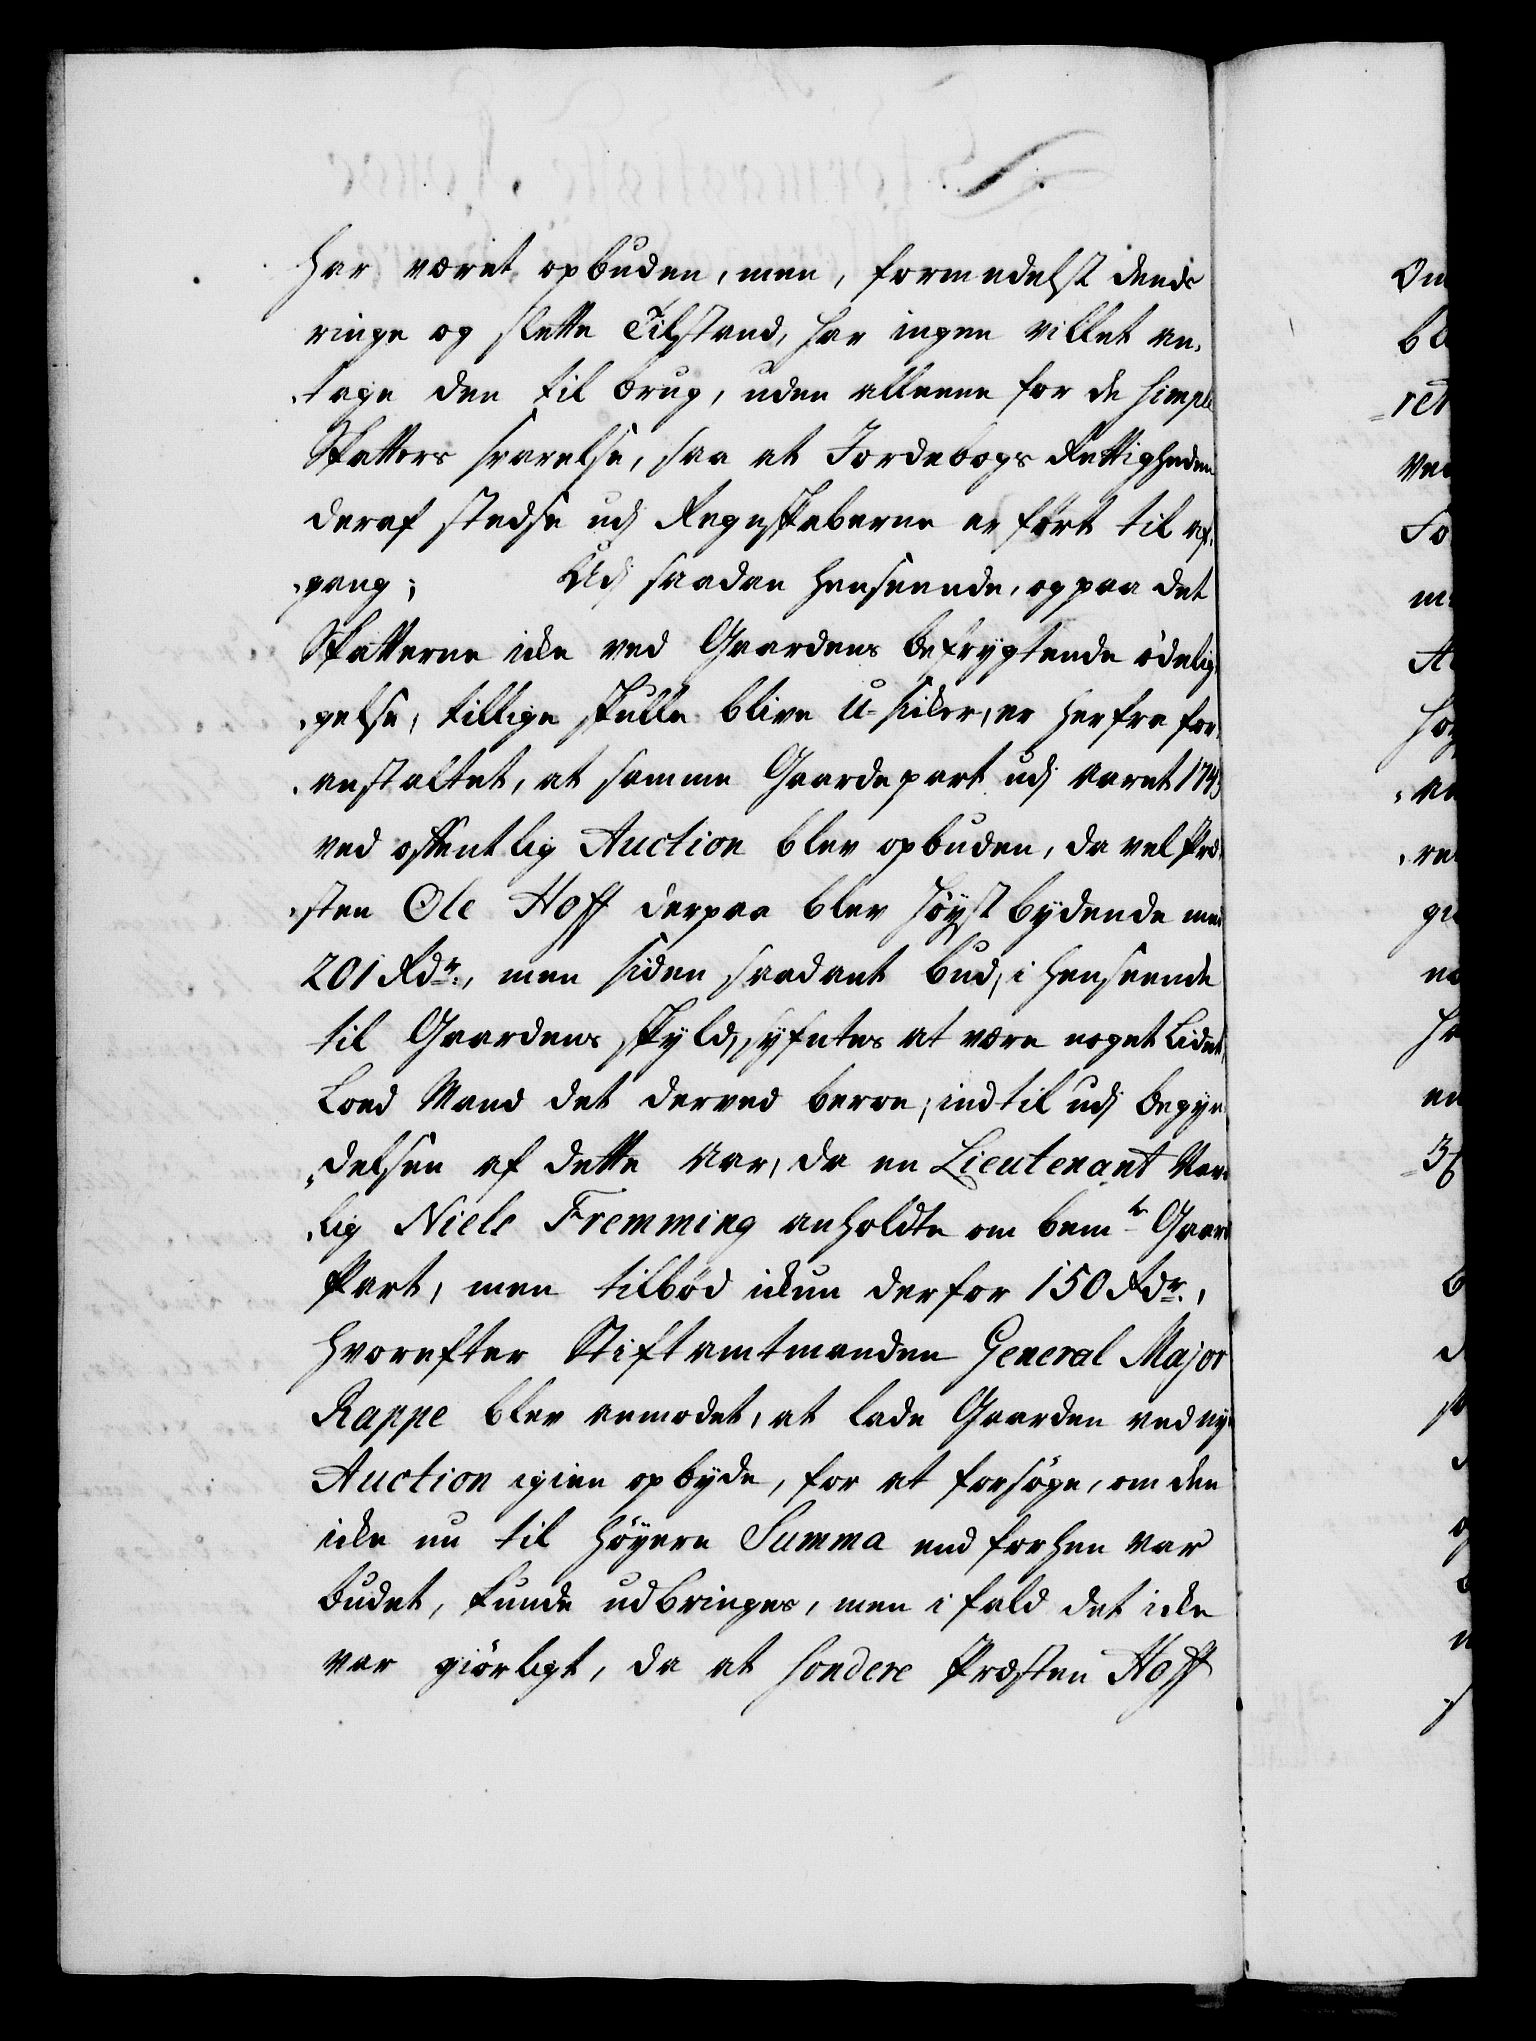 har været opbuden, men, formedelst dends
ringe og slette Tilstand, har ingen villet an-
-tage den til brug, uden alleene for de simple
Skatters svarelse, saa at Jordebogs Rettigheden
deraf stedse udj Regnskaberne er ført til af-
-gang; Udj saadan henseende, og paa det
Skatterne icke ved Gaardens befrygtende ödelig-
-gelse, tillige skulle blive U-sicker, er herfra for-
-anstaltet, at samme Gaardepart udj aaret 1743
ved offentlig Auction blev opbuden, da vel Præ-
-sten Ole Hoff derpaa blev høystbydende med
201 Rdr., men siden saadant bud, i henseende
til Gaardens skyld, syntes at være noget Lidet,
Loed Mand det derved beroe, indtil udj begyn-
-delsen af dette Aar, da en Lieutenant Nav-
-lig Niels Fremming anholdte om bemte Gaard
Part, men tilbød ickun derfor 150 Rdr.,
hvorefter Stiftamtmanden General Major
Rappe blev anmodet, at lade Gaarden ved ny
Auction igien opbyde, for at forsøge, om den
icke nu til høyere Summa end forhen var
budet, kunde udbringes, men i fald det icke
var giørligt, da at sondere Præsten Hoff